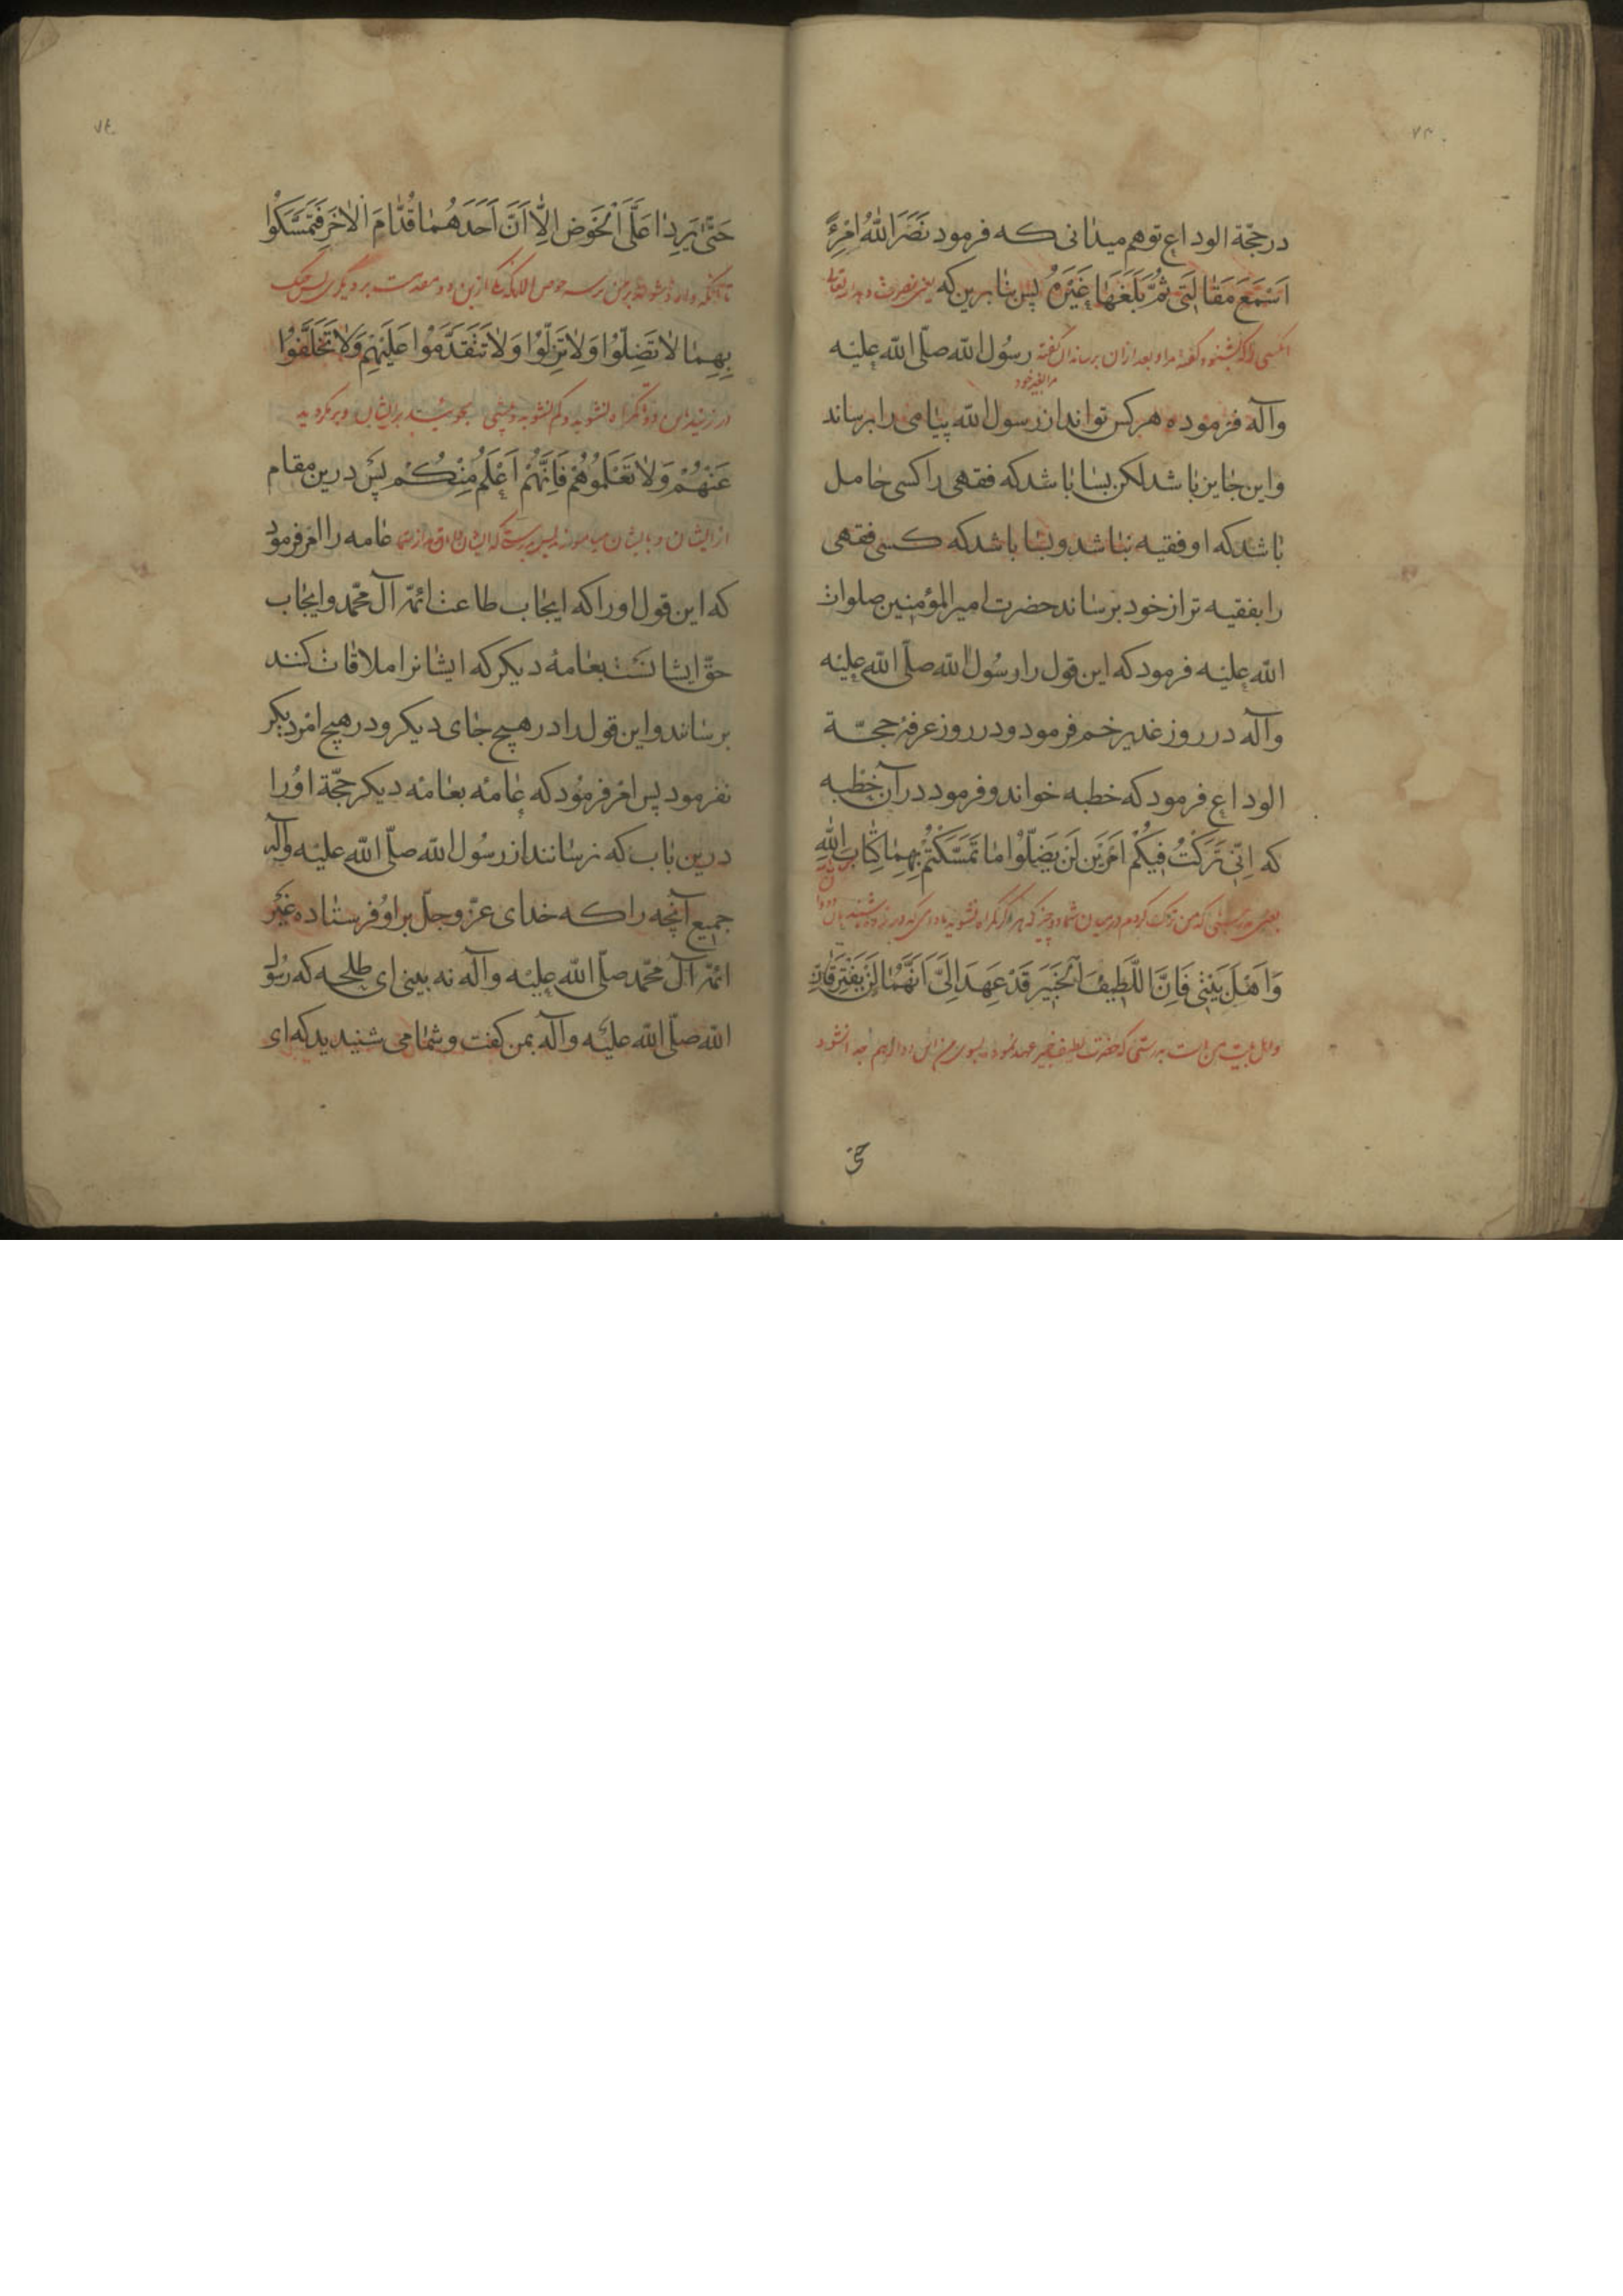 ۷۳
درحجّة الوداع توهم میدانی که فرمود نَضَرَاللّٰهُ امْرِءً
اَسْمَعَ مَقٰالَتی ثُمَّ بَلَّغَهٰا غَیْرَهُ پس بنابرین که یعنی
انکسی را که بشنود گفته مرا و بعد ازان برساند ان گفته رسُول اللّه صلّی اللّه علیْه
مرا بغیر خود
وآله فرموده هرکس تواند از رسول اللّه پیٰامی را برساند
واین جٰایز بٰاشد لکن بسٰا بٰاشد که فقهی را کسی حٰامل
بٰاشد که او فقیه نباشد وبسٰا باشد که کسی فقهی
را بفقیه تر از خود برسٰاند حضرت امیرالمؤمنین صلوات
اللّه علیْه فرمود که این قول را رسُول اللّه صلّی اللّه علیْه
وآله در روز غدیر خم فرمود ودر روز عرفهٔ حجّة
الوداع فرمود که خطبه خواند وفرمود در آن خطبه
که اِنّی تَرَکْتُ فیکُمْ اَمْرَیْن لَنْ یَضِلّوُا مٰا تَمَسَّکْتُمْ بِهِمٰا کِتٰابَ اللّٰهِ
یعنی بدرستی که من ترک کردم در میان شما دو چیز که هرگز گمراه نشوید
وَاَهْلَ بَیْتی فَاِنَّ اللَّطیفَ الْخَبیرَ قَدْ عَهِدَ اِلَیَّ اَنَّهُمٰا لَنْ یَفْتَرِقٰانِ
واهل بیت من است بدرستی که حضرت لطیف خبیر عهد نموده بسوی من
حتّی
۷٤
حَتّیٰ یَرِدٰا عَلَیَّ الْحَوْضَ اِلّٰا اَنَّ اَحَدَهُمٰا قُدّٰامَ الْاٰخَرِ فَتَمَسَّکُوا
تا آنکه وارد شوند بر من بر سر حوض
بِهِمٰا لاٰتَضِلّوُا وَلاٰتَزِلّوُا وَلاٰتَتَقَدَّمُوا عَلَیْهِمْ وَلاٰتَخَلَّفوُا
گمراه نشوید وکم نشوید وپیشی مجوئید بر ایشان وبر مگردید
عَنْهُمْ وَلاٰتَعْلَموُهُمْ فَاِنَّهُمْ اَعْلَمُ مِنْکُمْ پَس درین مقام
از ایشان عٰامه را امر فرمود
که این قول او را که ایجٰاب طاعت ائمّهٔ آل محمّد وایجٰاب
حقّ ایشانست بعٰامهٔ دیکر که ایشانرا ملاقات کنند
برسٰانند واین قول را در هیچ جٰای دیکر ودر هیچ امْر دیکر
نفرمود پس امْر فرمُود که عٰامه بعٰامهٔ دیکر حجّة اوُرا
درین بٰاب که نرسٰانند از رسُول اللّه صلّی اللّه علیْه وآله
جمیع آنچه را که خدای عزّ وجلّ براو فرستٰاده غیْر
ائمّهٔ آل محمّد صلّی اللّه علیْه وآله نه بینی ای طلحه که رسُول
اللّه صلّی اللّه علیْه وآله بمن کفت وشمٰا می شنیدید که ای